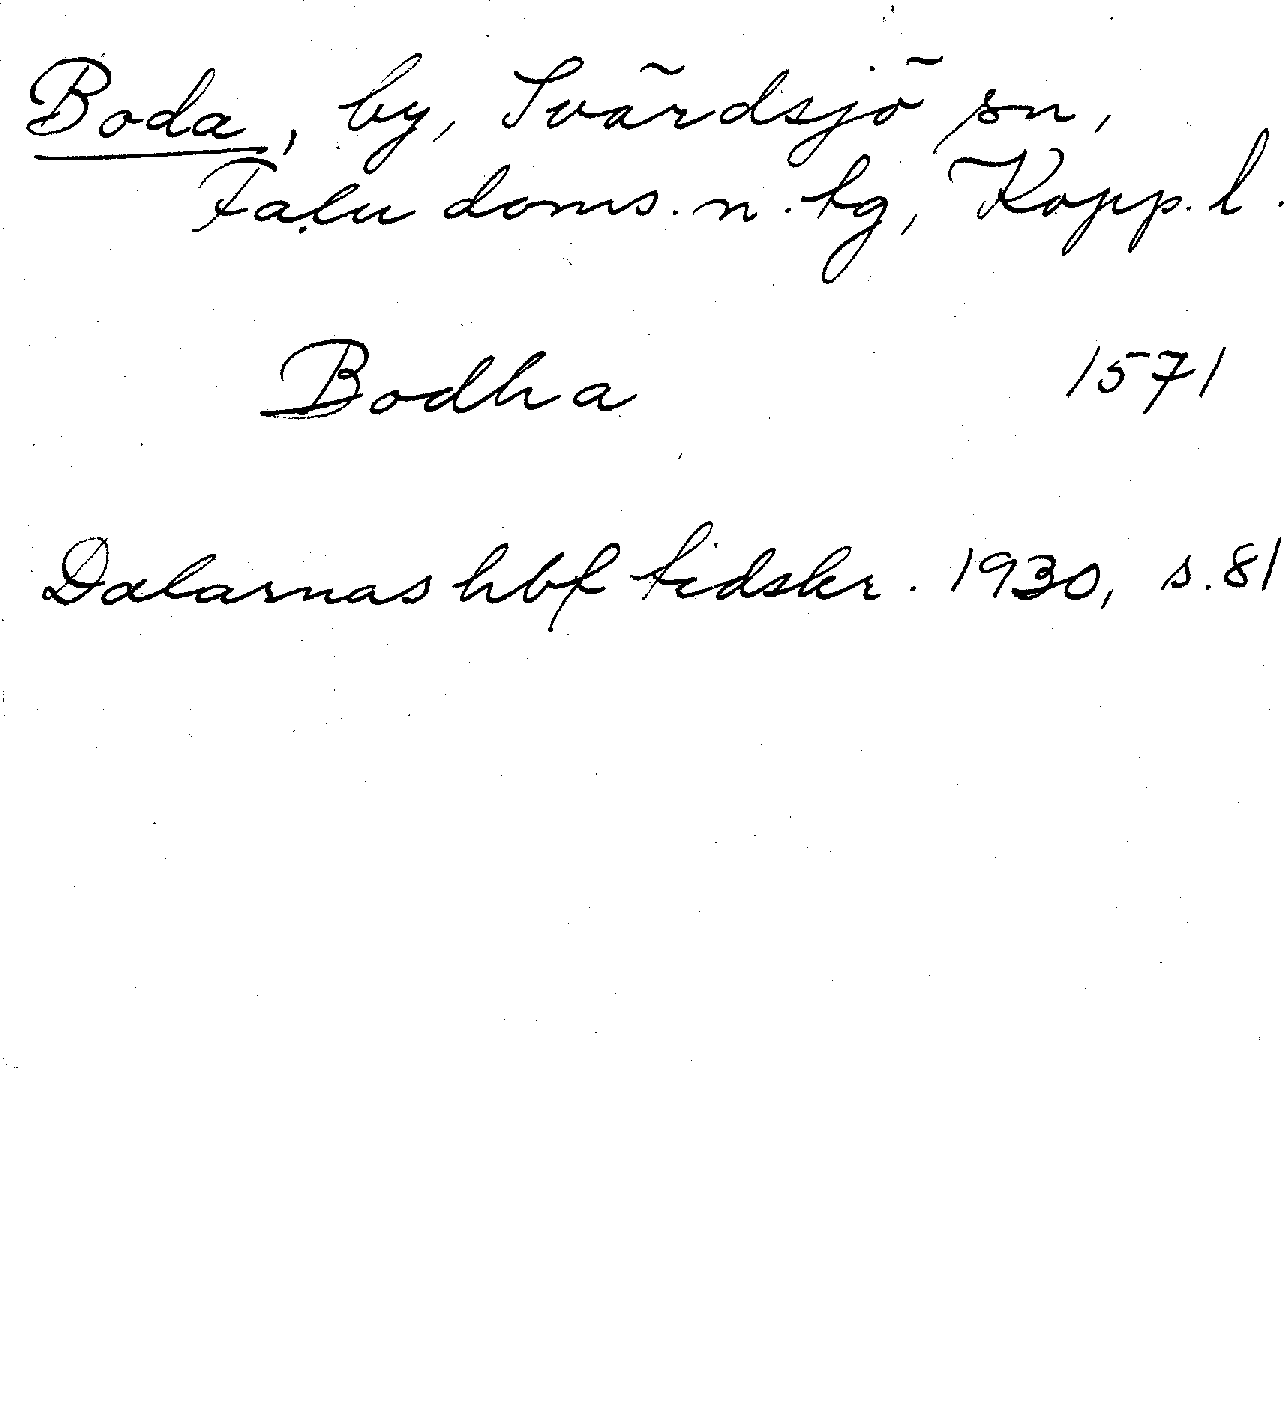 Boda, by, Svärdsjö sn,
Falu doms. n. tg, Kopp. l.
Bodha 1571
Dalarnas hbf tidskr. 1930, s. 81